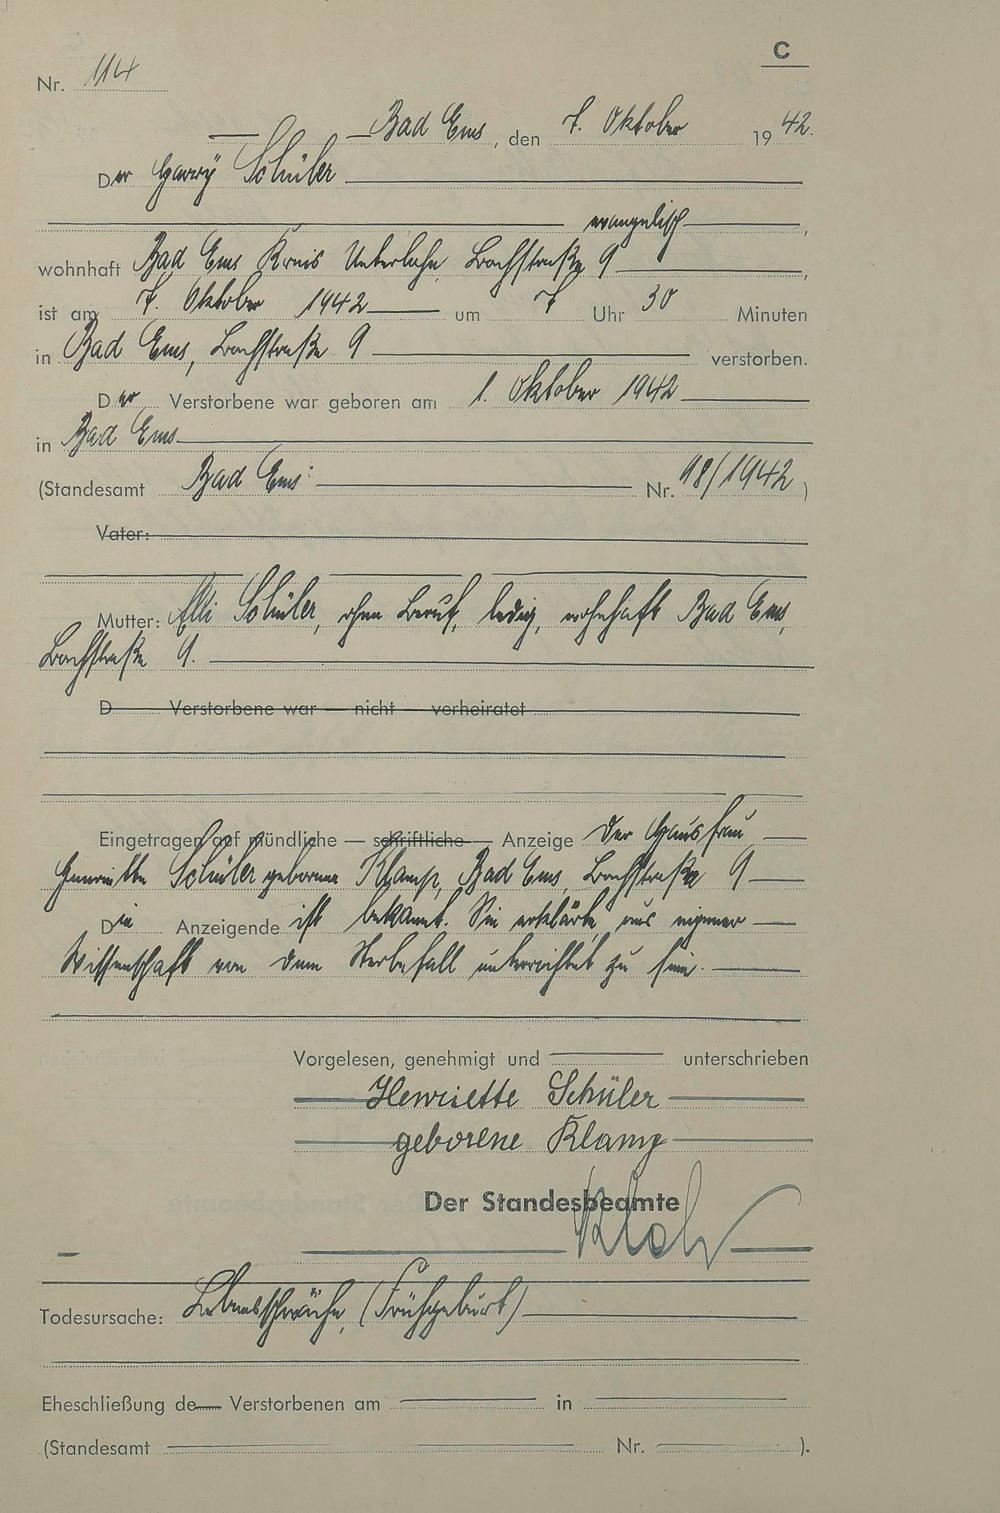 C
Nr. 114
Bad Ems, den 7. Oktober 1942.
Der Harry Schüler
evangelisch,
wohnhaft Bad Ems Kreis Unterlahn, Bachstraße 9,
ist am 7. Oktober 1942 um 7 Uhr 30 Minuten
in Bad Ems, Bachstraße 9 verstorben.
Der Verstorbene war geboren am 1. Oktober 1942
in Bad Ems
(Standesamt Bad Ems Nr. 98/1942)
Vater:
Mutter: Schüler, ohne Beruf, ledig, wohnhaft Bad Ems,
Bachstraße 9.
D Verstorbene war — nicht — verheiratet
Eingetragen auf mündliche — schriftliche — Anzeige der Hausfrau
Henriette Schüler geborene Klamp, Bad Ems, Bachstraße 9
Die Anzeigende ist bekannt. Sie erklärte, aus eigener
Wissenschaft von dem Sterbefall unterrichtet zu sein.
Vorgelesen, genehmigt und unterschrieben
Henriette Schüler
geborene Klamp
Der Standesbeamte
Todesursache: Lebensschwäche, (Frühgeburt)
Eheschließung de Verstorbenen am in
(Standesamt Nr. ).